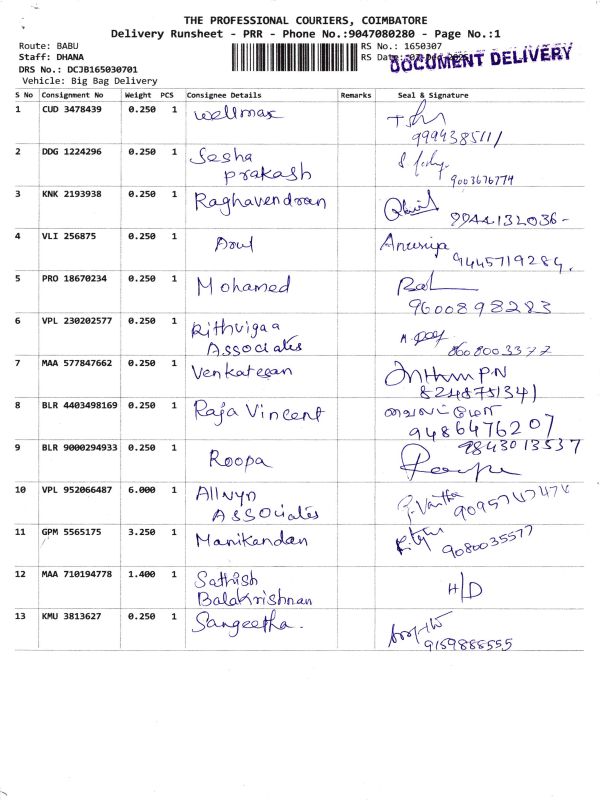 THE PROFESSIONAL COURIERS, COIMBATORE
Delivery Runsheet - PRR - Phone No.:9047080280 - Page No.:1
Route: BABU
Staff: DHANA
DRS No.: DCJB165030701
Vehicle: Big Bag Delivery
RS No.: 1650307
RS Date:
DOCUMENT DELIVERY
S No Consignment No Weight PCS Consignee Details Remarks Seal & Signature
1 CUD 3478439 0.250 1 Wellmax
9994385111
2 DDG 1224296 0.250 1 Sesha
Prakash
9003676774
3 KNK 2193938 0.250 1 Raghavendran
9944132036-
4 VLI 256875 0.250 1 Arul Anusiya
9445719284.
5 PRO 18670234 0.250 1 Mohamed
9600898283
6 VPL 230202577 0.250 1 Rithvigaa
Associates
8608003377
7 MAA 577847662 0.250 1 Venkatesan
8248751341
8 BLR 4403498169 0.250 1 Raja Vincent
9486476207
9 BLR 9000294933 0.250 1 Roopa
9843013537
10 VPL 952066487 6.000 1 Allwyn
Associates
9095747474
11 GPM 5565175 3.250 1 Manikandan
9080035577
12 MAA 710194778 1.400 1 Sathish
Balakrishnan
H/D
13 KMU 3813627 0.250 1 Sangeetha.
9159888555